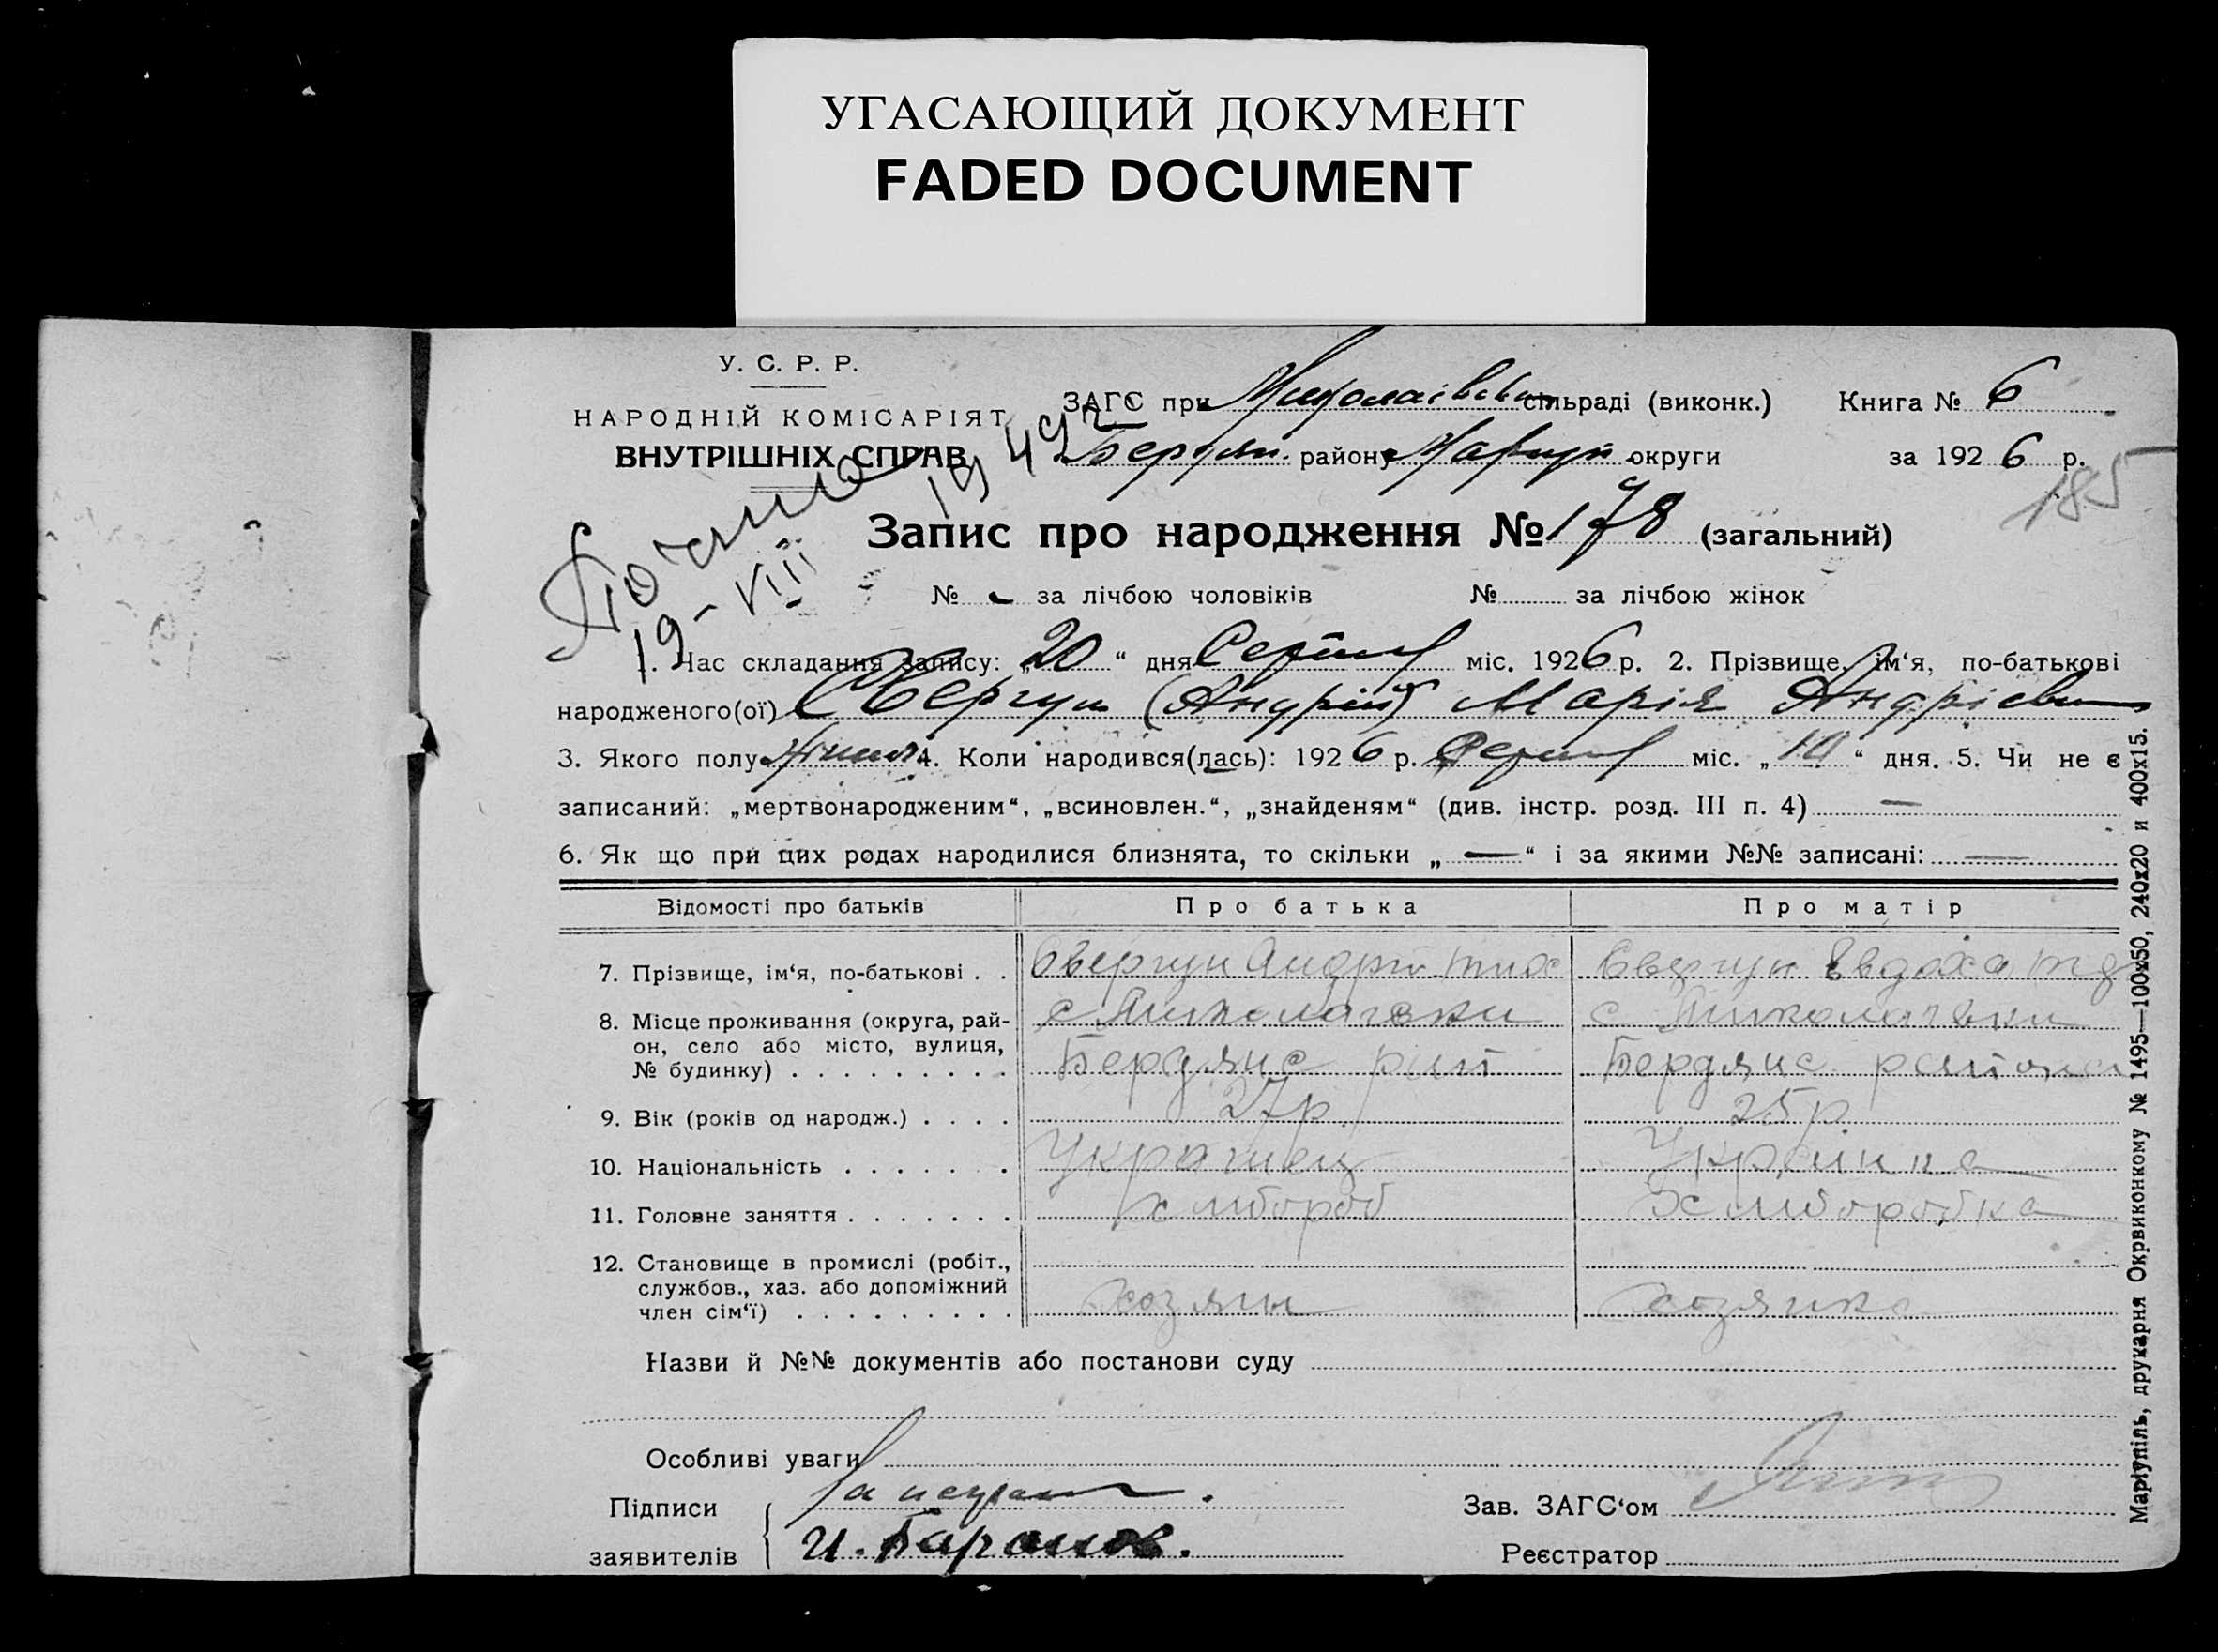 УГАСАЮЩИЙ ДОКУМЕНТ
FADED DOCUMENT
У. С. Р. Р.
НАРОДНІЙ КОМІСАРІЯТ
ВНУТРІШНІХ СПРАВ
ЗАГС при сільраді (виконк.) Книга № 6
Бердян. району Маріуп округи за 1926 р.
185
19-VIII
Запис про народження № 178 (загальний)
№ за лічбою чоловіків № за лічбою жінок
1. Час складання запису: „20“ дня Серпня міс. 1926 р. 2. Прізвище, ім‘я, по-батькові
народженого(ої) Свергун (Андрій) Марія Андріевна
3. Якого полу 4. Коли народився(лась): 1926 р. Серпня міс. „10“ дня. 5. Чи не є
записаний: „мертвонародженим“, „всиновлен.“, „знайденям“ (див. інстр. розд. III п. 4) —
6. Як що при цих родах народилися близнята, то скільки „—“ і за якими №№ записані: —
Відомості про батьків Про батька Про матір
7. Прізвище, ім‘я, по-батькові . . Свергун Андрій Свергун Евдоха
8. Місце проживання (округа, рай-он, село або місто, вулиця, № будинку) с Николаевки с Николаевки
Бердянс рай Бердянс района
9. Вік (років од народж.) . . . . 27р. 25р.
10. Національність . . . . . . Украінец Украінка
11. Головне заняття . . . . . . . Хлибороб Хлиборобка
12. Становище в промислі (робіт., службов., хаз. або допоміжний член сім‘ї) . . . . . . . . . хозяин хозяика
Назви й №№ документів або постанови суду
Особливі уваги
Підписи
заявителів
И. Баранов.
Зав. ЗАГС‘ом
Реєстратор
Маріупіль, друкарня Окрвиконкому № 1495—100х50, 240х20 и 400х15.